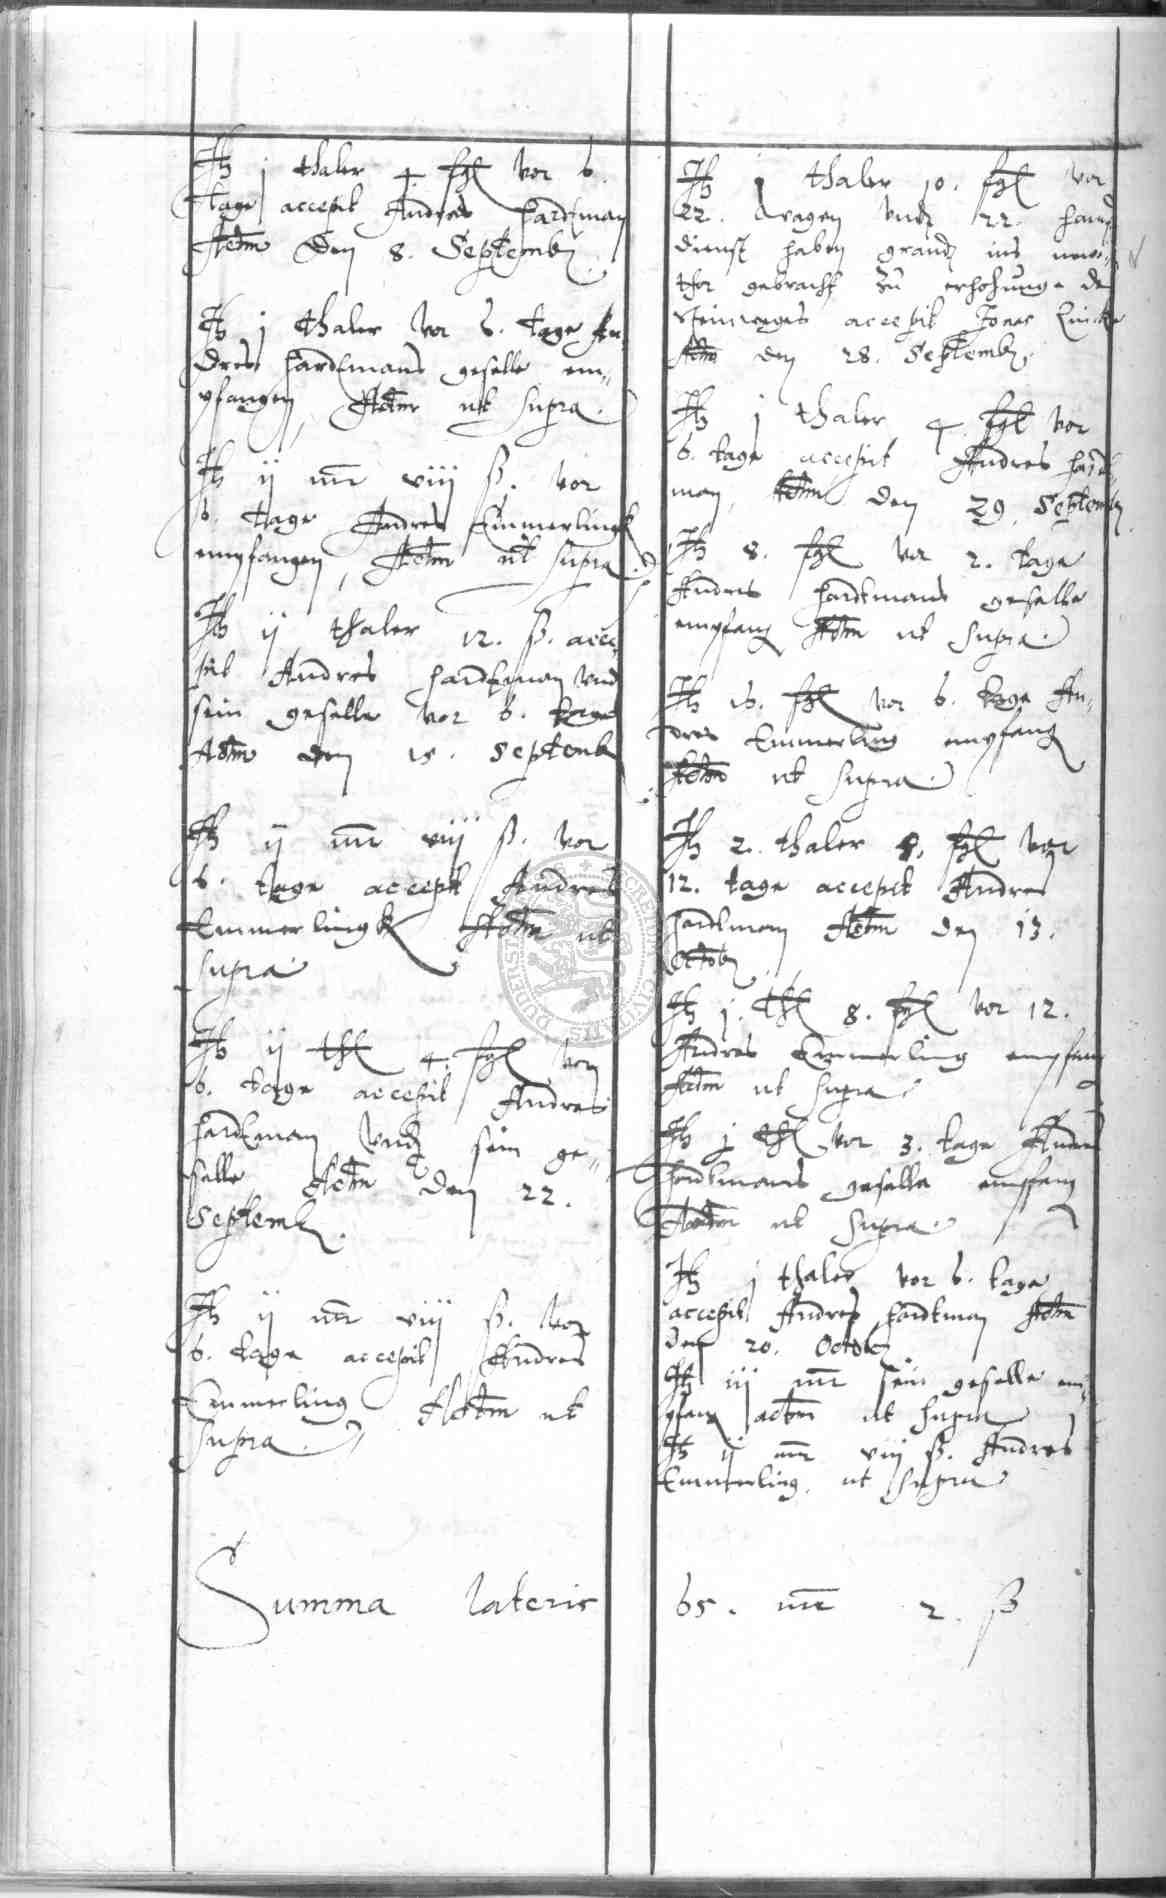 It j thaler 4 sgl vor 6.
tage accepit Andres Hardtman
Actm den 8. Septemb
It j thaler vor 6. tage An¬
dres Hardtmans geselle em¬
pfangen, Actm ut supra.
It ij mr viij ß. vor
6. tage Andres Emmerlingk
empfangen, Actm ut supra.
It ij thaler 12. ß. acce¬
pit Andres Hardtman vnd
sein geselle vor 6. tage
Actm den 15. Septemb
It ij mr viij ß. vor
6. tage accepit Andres
Emmerlingk Actm ut
supra.
It ij thl 4. sgl vor
6. tage accepit Andres
Hardtman vnd sein ge¬
selle Actm den 22.
Septemb.
It ij mr viij ß. vor
6. tage accepit Andres
Emmerling Actm ut
supra.
Summa lateris
It j thaler 10. sgl vor
22. wagen vnd 22. hand
dienst haben grand ins newe
thor gebracht zu erhohunge de
Steinweges accepit Lincke
Actm den 28. Septemb.
It j thaler 4 sgl vor
6. tage accepit Andres Hardt¬
man, Actm den 29. Septemb
It 8. sgl vor 2. tage
Andres Hardtmans geselle
empfang Actm ut supra.
It 16. sgl vor 6. tage An¬
dres Emmerling empfang
Actm ut supra.
It 2. thaler 8. sgl vor
12. tage accepit Andres
Hardtman Actm den 13.
Octob
It j. thl 8. sgl vor 12.
Andres Emmerling empfang
Actm ut supra.
It j thl vor 3. tage Andres
Hardtmans geselle empfang
Actm ut supra.
It j thaler vor 6. tage
accepit Andres Hardtman Actm
den 20. Octob
It iij mr sein geselle em¬
pfang actm ut supra
It ij mr viij ß. Andres
Emmerling ut supra
65. mr 2. ß